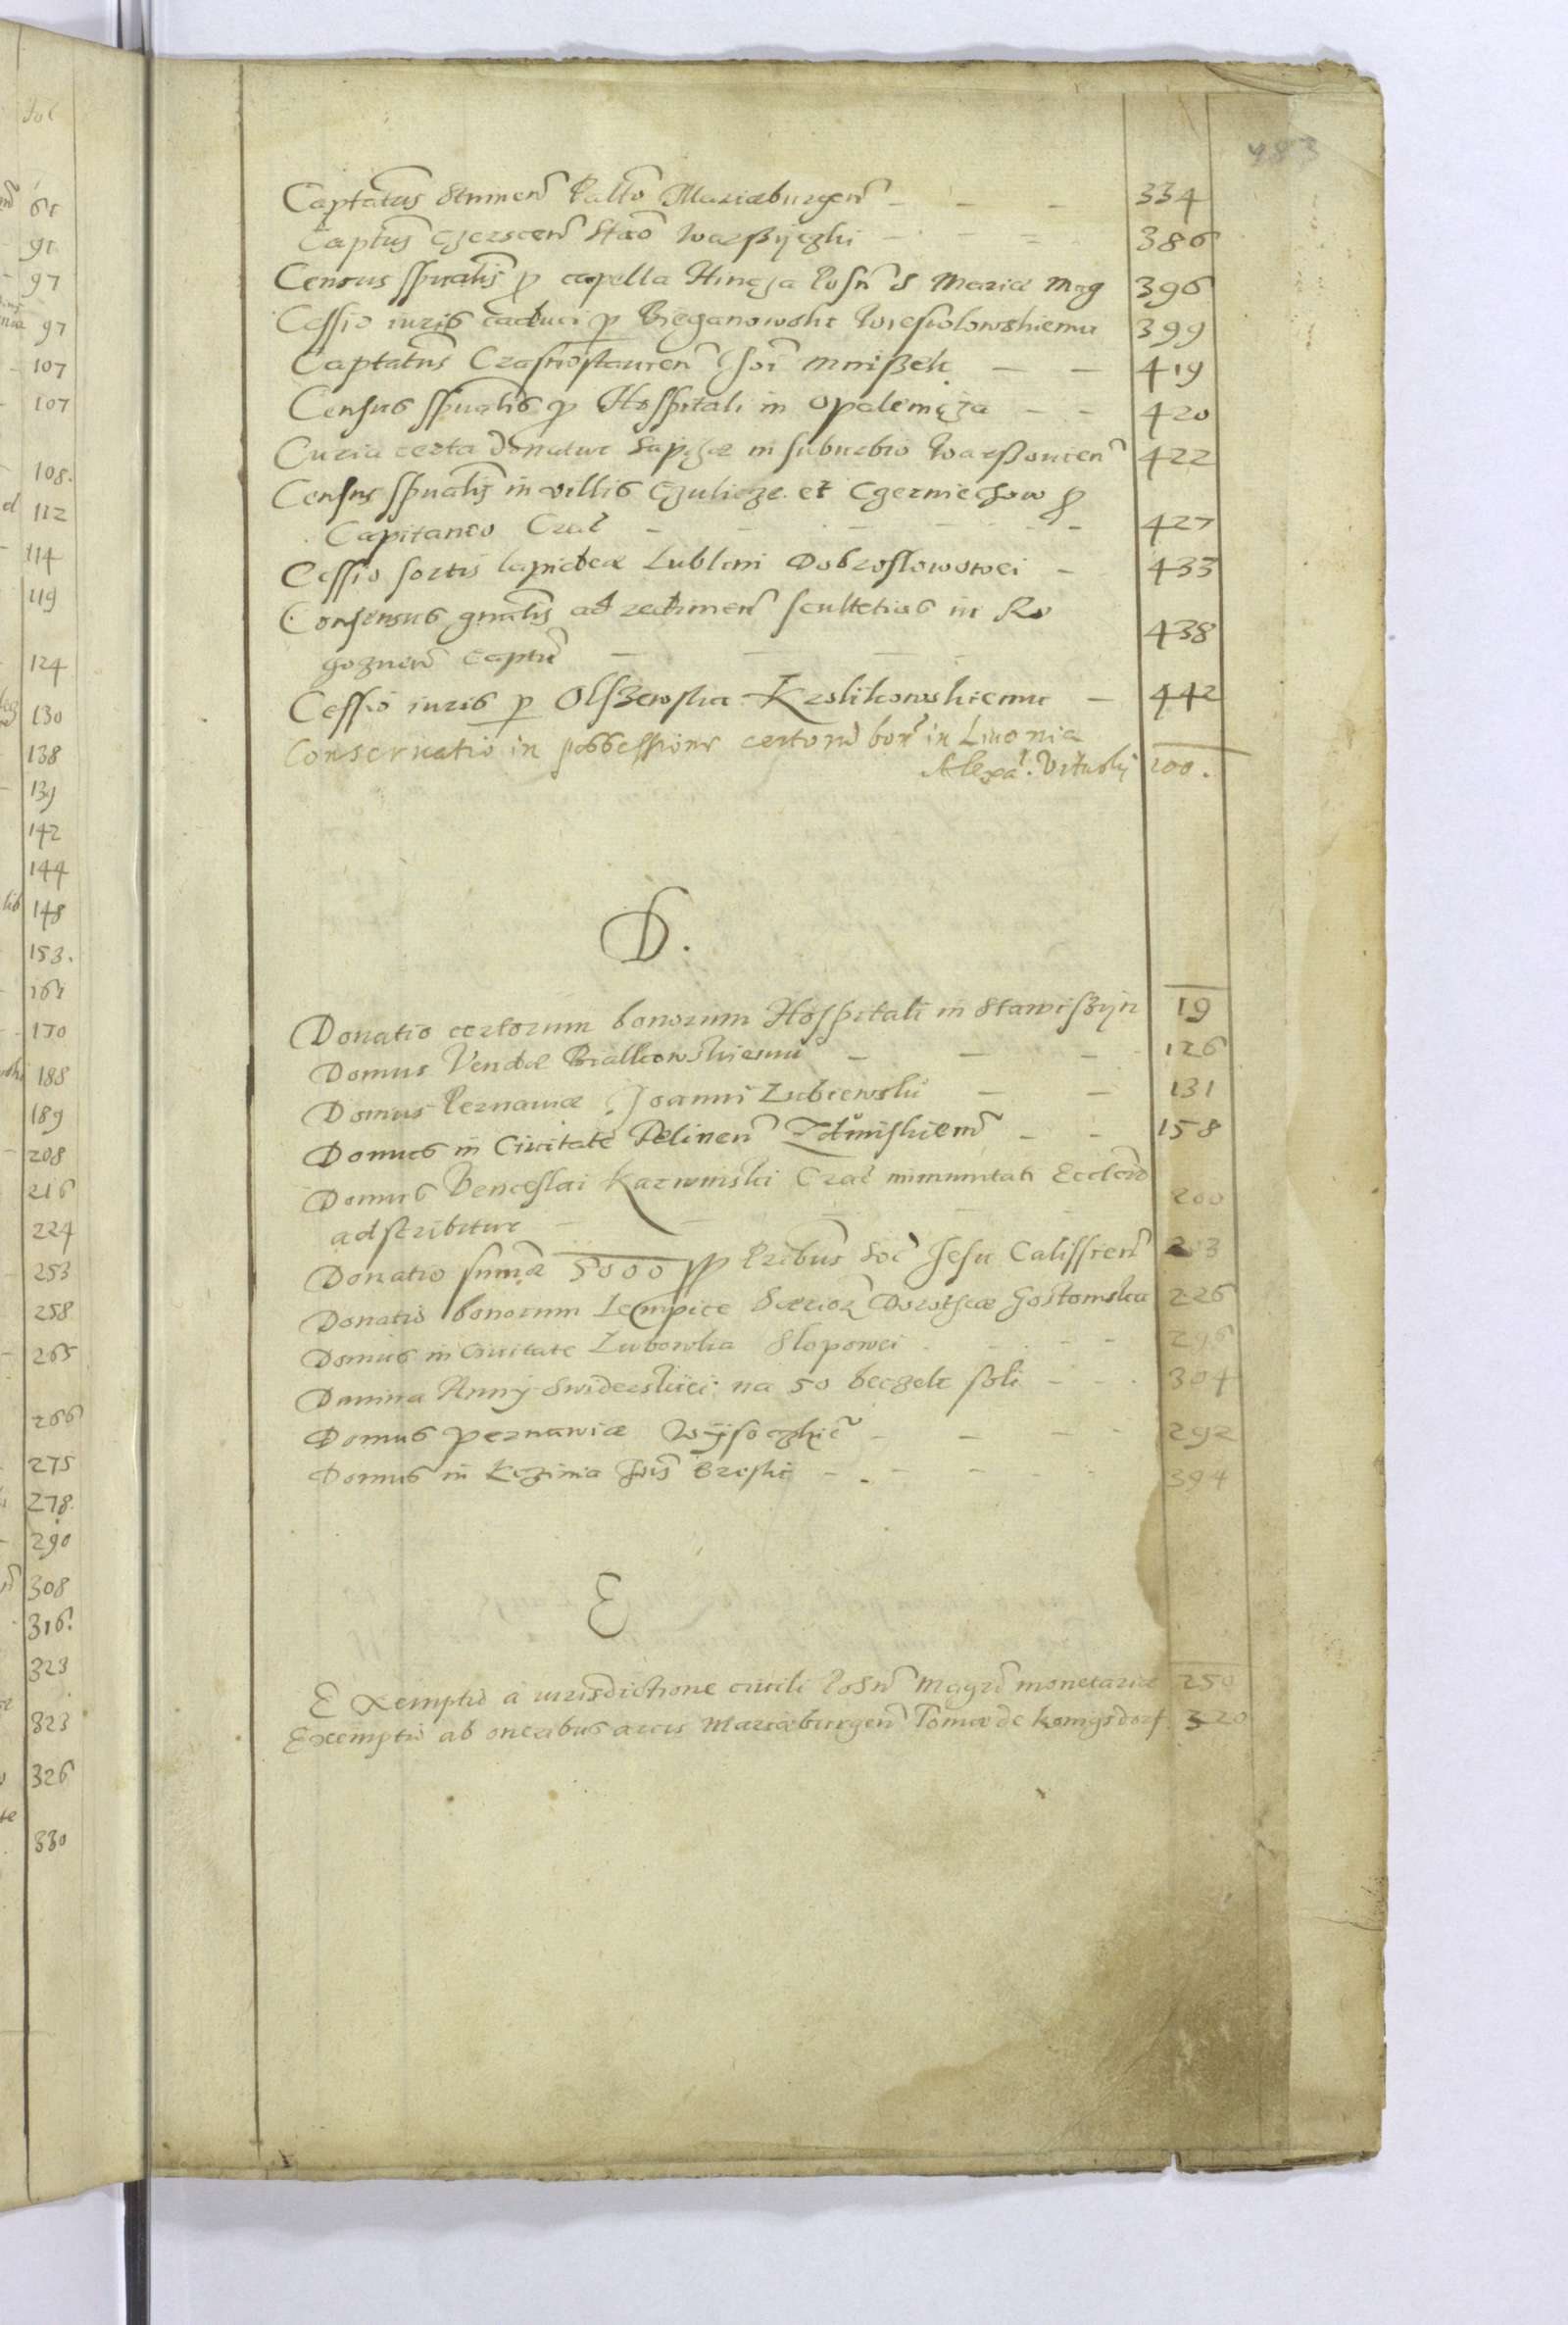 483
Captatus Stumen Palto Mariæburgen - - - 334
Captus Czerscen Stao Warßyczki - - - 386
Census spualis p capella Hincza Posn S Mariæ Mag 396
Cessio iuris caduci p Bieganowski Wiesiolowskiemu 399
Captatus Crasnostauien Joi Mnißek - - 419
Census spualis p Hospitali in Opalenicza - - 420
Curia certa donatur Sapihæ in suburbio Warßouien 422
Census spualis in villis Czulicze et Czerniechow p
Capitaneo Crac - - - - - - 427
Cessio sortis lapideæ Lublini Dobroslowowei - 433
Consensus gnalis ad redimen scultetias in Ro
goznen captu - - - - 438
Cessio iuris p Olszewska Krolikowskiemu - 442
Conseruatio in possessione certoru bor in Liuonia
Alexa Vituski 200.
D.
Donatio certorum bonorum Hospitali in Stawiszyn 19
Domus Vendæ Bialkowskiemu - - - 126
Domus Pernauiæ Joanni Zubrewski - - 131
Domus in Ciuitate Felinen - - 158
Domus Venceslai Karwinski Crac immunitati Eccleæ
adscribitur - - - - - 200
Donatio sumæ 5000 pp Pribus Soc Jesu Calissien 213
Donatio bonorum Lempice Dorotheæ Gostomska 226
Domus in Ciuitate Lubowla Slopowei - - - 296
Danina Anny Swiderskiei na 50 beczek soli - - - 304
Domus Pernawiæ Wysoczkie - - - - 292
Domus in Kczinia Jois Breski - - - - - 394
E
Exemptio a iurisdictione ciuili Posn Magri monetariæ 250
Exemptio ab oneribus arcis Mariæburgen Tomæ de Konigsdorf 320
fol
61
91
97
97
107
107
108.
112
114
119
124
130
138
139
142
144
148
153.
161
170
188
189
208
216
224
253
258
265
266
275
278.
290
308
316.
323
323
326
330